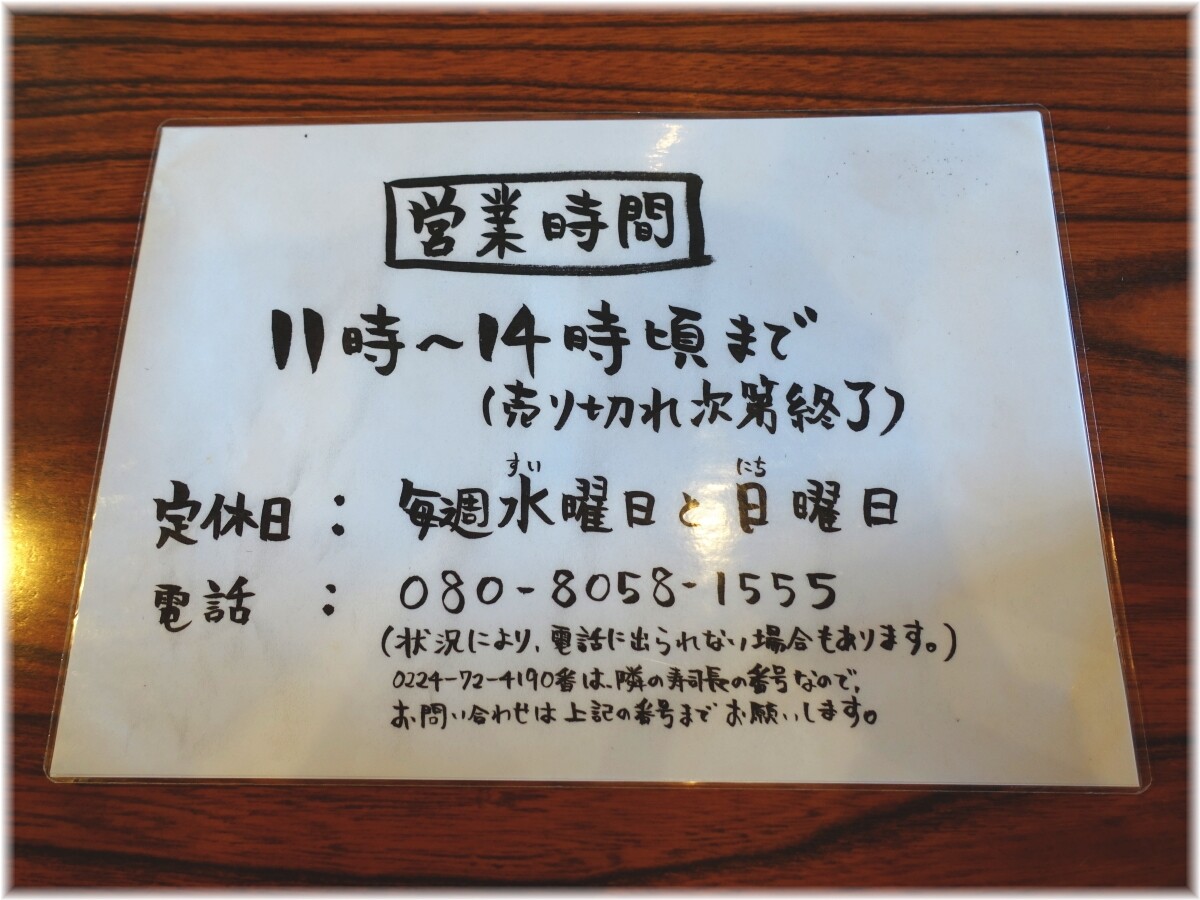 営業時間
11時～14時頃まで
(売り切れ次第終了)
すい にち
定休日：毎週水曜日と日曜日
電話：080-8058-1555
(状況により、電話に出られない場合もあります。)
0224-72-4190番は、隣の寿司長の番号なので、
お問い合わせは上記の番号までお願いします。